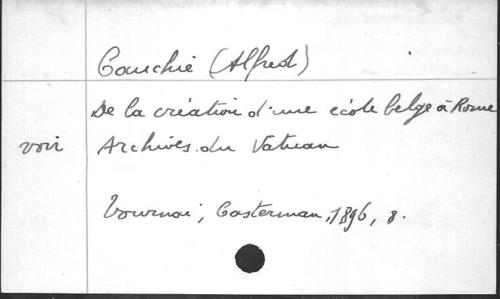 Cauchie (Alfred)
De la création d'une école belge à Rome
voir Archives du Vatican
Tournai, Casterman, 1896, 8.